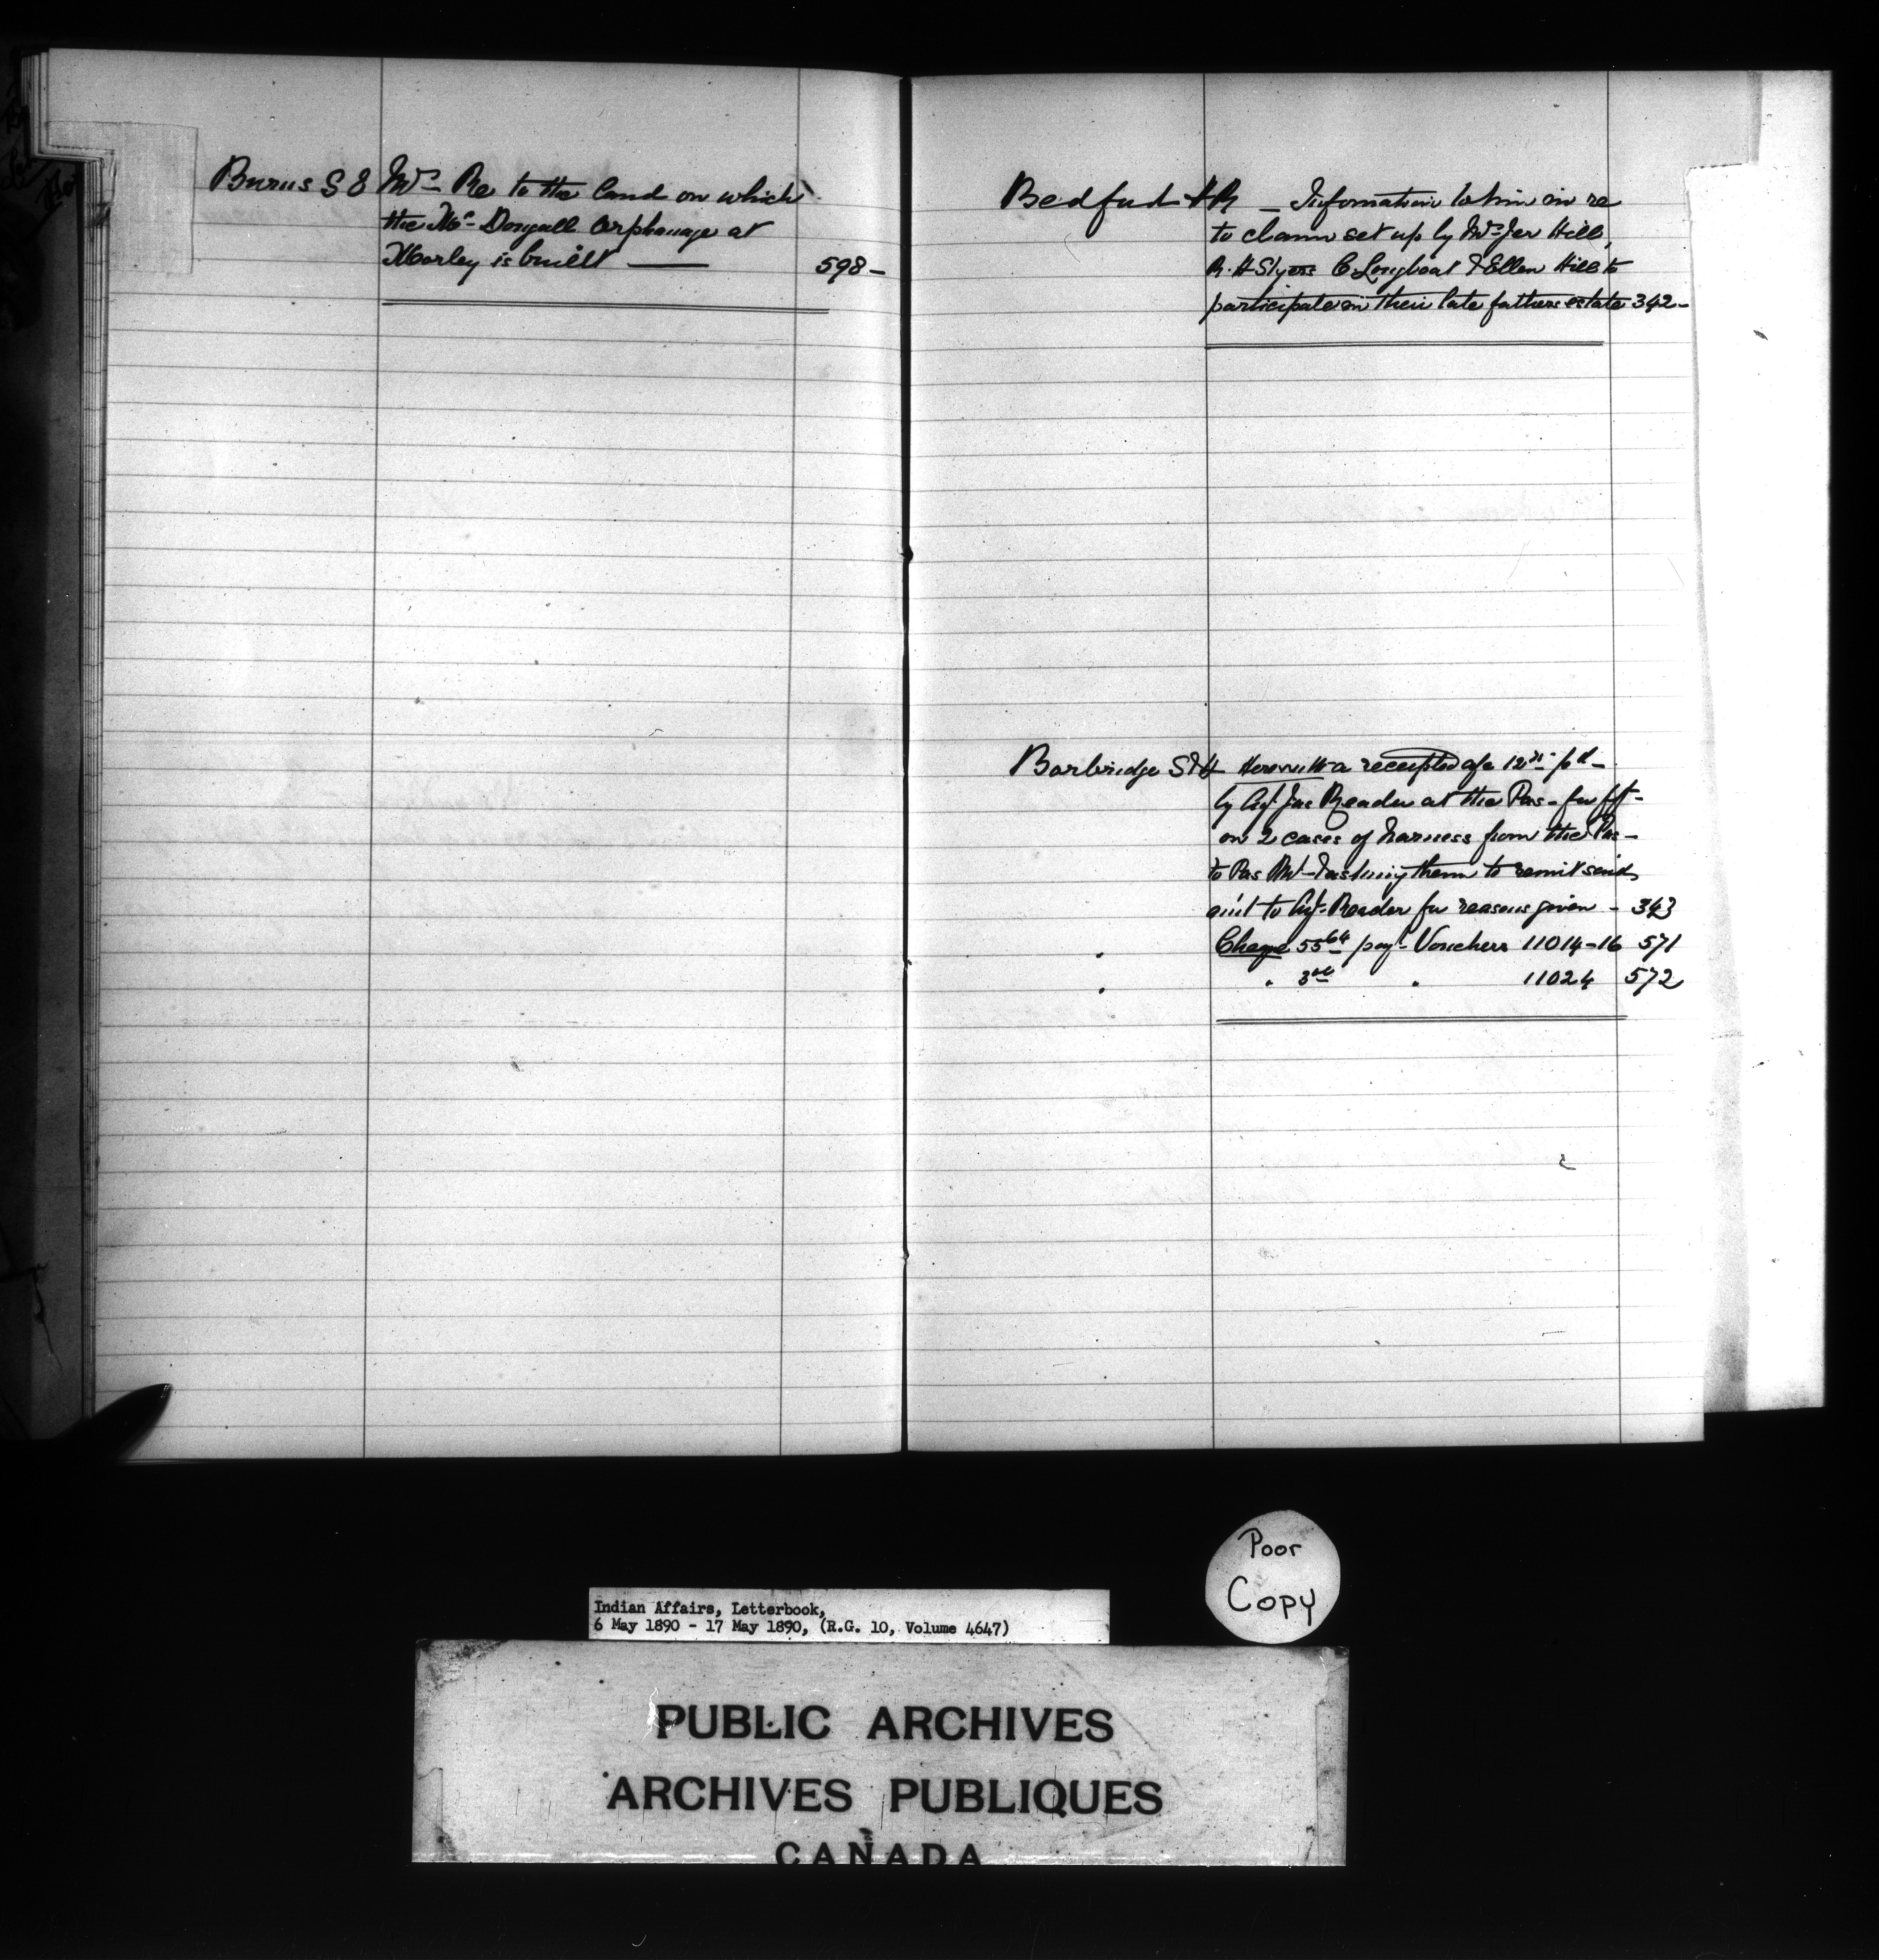 Burns S E Mrs Re to the land on which
the McDougall Orphanage at
Morley is built — 598 -
Bedford H R - Information to him in re
to claim set up by Mrs Jer Hill,
R. H Styers C Longboat & Ellen Hill to
participate in their late fathers estate 342 -
Borbridge S & H Herewith a receipted a/c pd -
by Agt Jas Reader at the Pas - for frt -
on 2 cases of harness from the Pas -
to Pas Mt - them to remit said
amt to Agt. Reader for reasons given - 343
" Cheque 55 64 payt Vouchers 11014-16 571
" " 3 " 11024 572
Poor
Copy
Indian Affairs, Letterbook,
6 May 1890 - 17 May 1890, (R.G. 10, Volume 4647)
PUBLIC ARCHIVES
ARCHIVES PUBLIQUES
CANADA